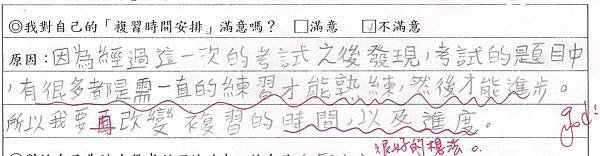 ◎我對自己的「複習時間安排」滿意嗎？ □滿意 ☑不滿意
原因：因為經過這一次的考試之後發現，考試的題目中
，有很多都是需一直的練習才能熟練，然後才能進步。
所以我要再改變複習的時間，以及進度。
good!
很好的想法。